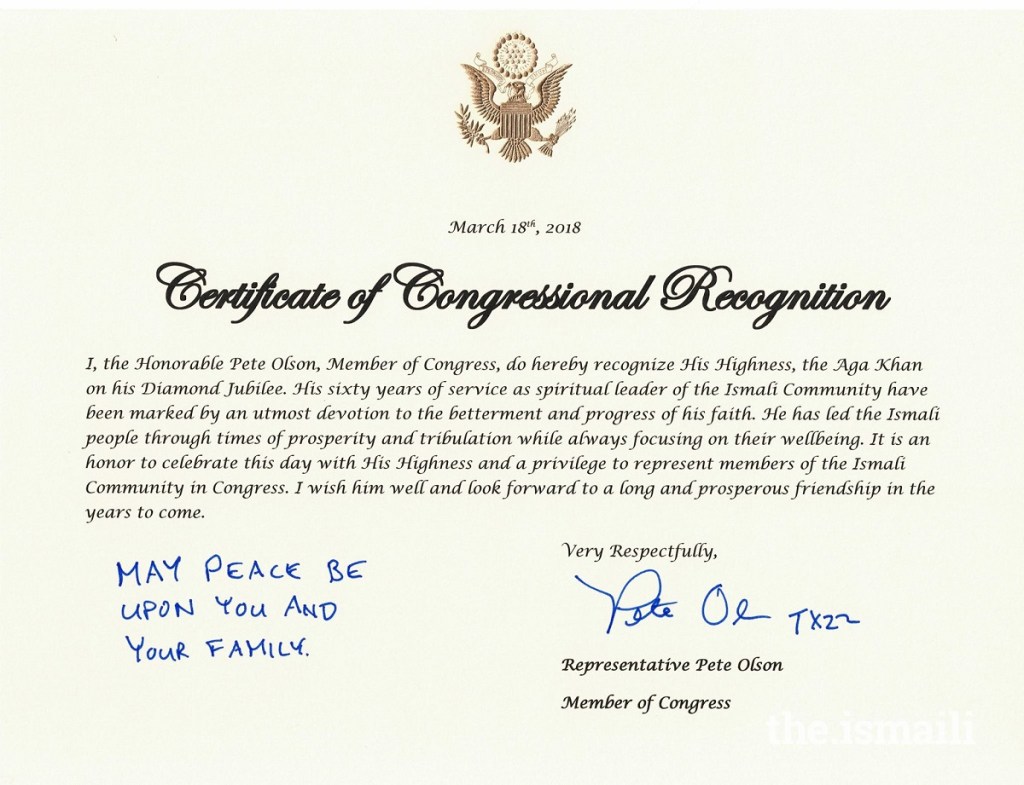 March 18th, 2018
Certificate of Congressional Recognition
I, the Honorable Pete Olson, Member of Congress, do hereby recognize His Highness, the Aga Khan
on his Diamond Jubilee. His sixty years of service as spiritual leader of the Ismali Community have
been marked by an utmost devotion to the betterment and progress of his faith. He has led the Ismali
people through times of prosperity and tribulation while always focusing on their wellbeing. It is an
honor to celebrate this day with His Highness and a privilege to represent members of the Ismali
Community in Congress. I wish him well and look forward to a long and prosperous friendship in the
years to come.
MAY PEACE BE
UPON YOU AND
YOUR FAMILY.
Very Respectfully,
Pete Ol TX22
Representative Pete Olson
Member of Congress
the.ismaili